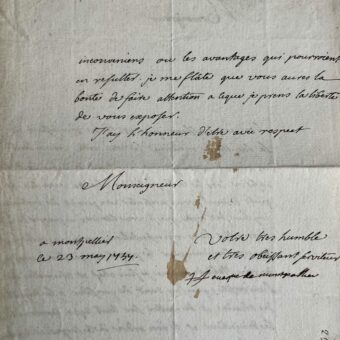 inconveniens ou les avantages qui pourroient
en resulter. je me flate que vous aures la
bonté de faire attention a ceque je prens la liberté
de vous exposer.
J'ay l'honneur d'etre avec respect
Monseigneur
a montpellier
le 23 may
Votre tres humble
et tres obeissant serviteur
eveque de montpellier